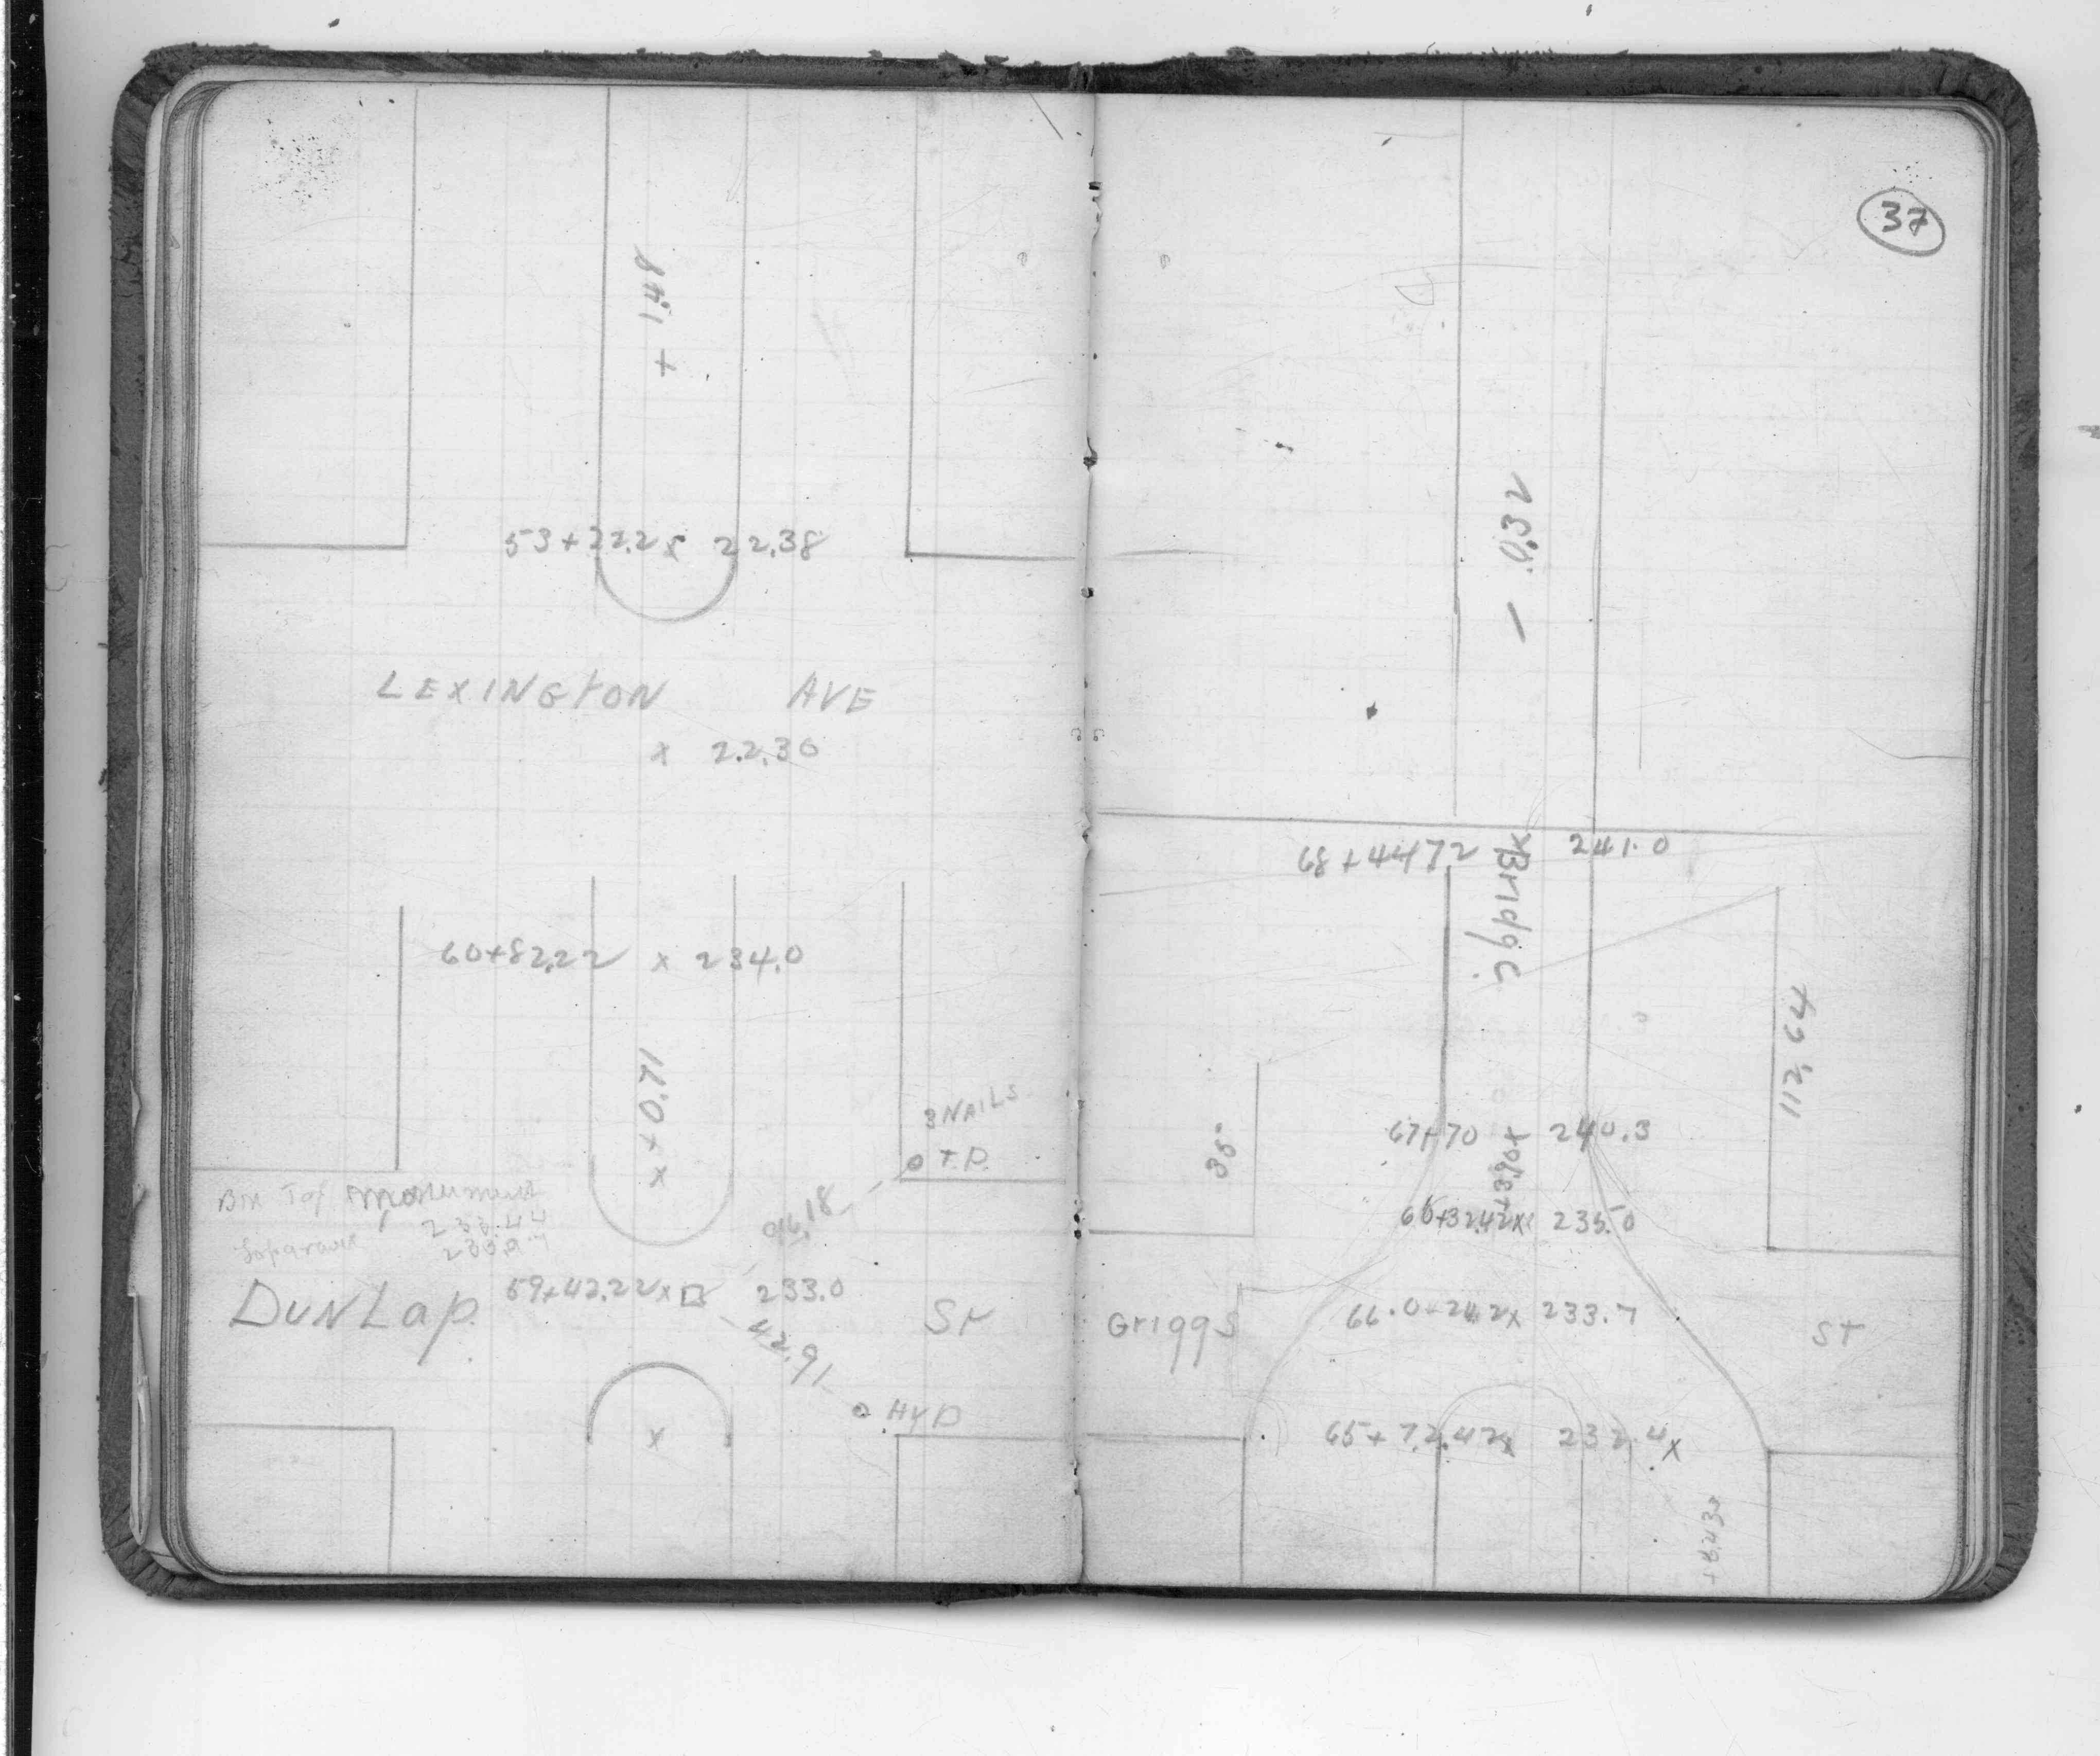 + 1.48
53+22.2 x 22.38
LEXINGTON AVE
x 22.30
60+82.22 x 234.0
x + 0.71
3 NAILS
T.P.
BM Top monument
233.44
DUNLap 59+42.22 x 233.0 ST
42.91
HYD
37
- 0.32
68+44.72 x 241.0
Bridge
112.64
35'
67+70 x 240.3
+3.90
66+32.42 x 235.0
Griggs 66.0+24.2 x 233.7 ST
65+72.42 x 232.4 x